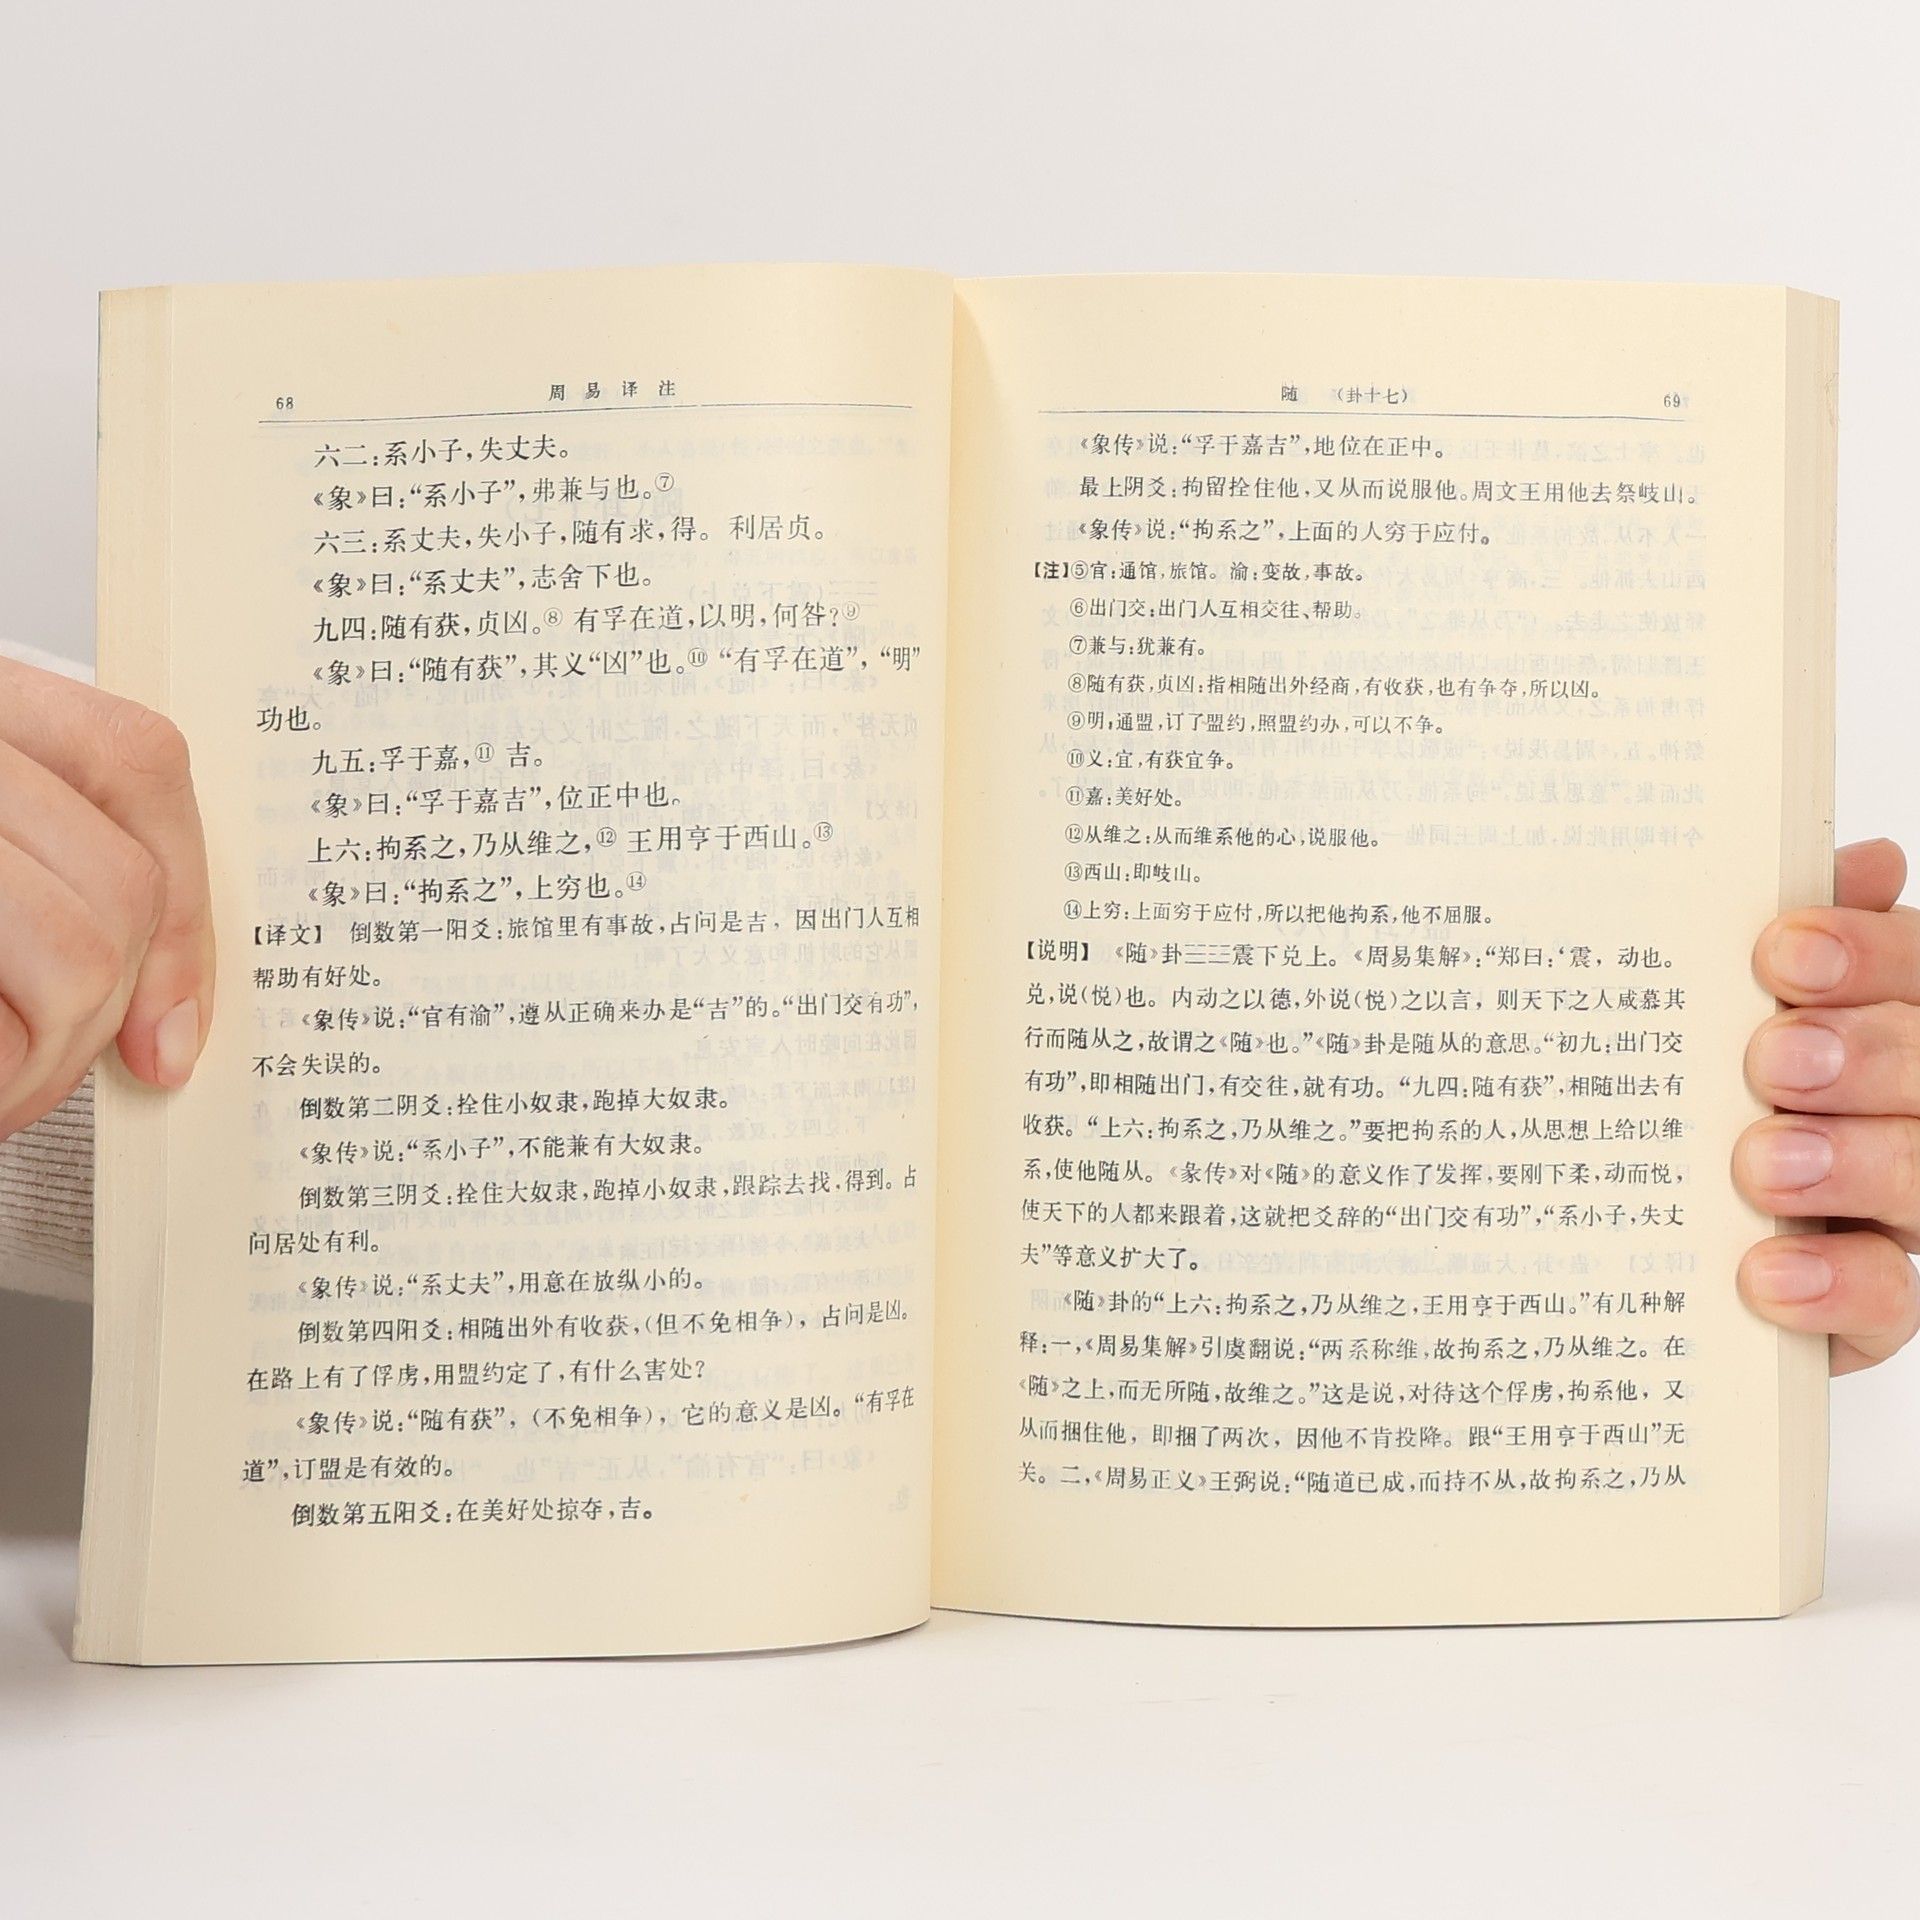 68
周易译注
六二：系小子，失丈夫。
《象》曰：“系小子”，弗兼与也。⑦
六三：系丈夫，失小子，随有求，得。利居贞。
《象》曰：“系丈夫”，志舍下也。
九四：随有获，贞凶。⑧ 有孚在道，以明，何咎？⑨
《象》曰：“随有获”，其义“凶”也。⑩ “有孚在道”，“明”
功也。
九五：孚于嘉，⑪ 吉。
《象》曰：“孚于嘉吉”，位正中也。
上六：拘系之，乃从维之，⑫ 王用亨于西山。⑬
《象》曰：“拘系之”，上穷也。⑭
【译文】 倒数第一阳爻：旅馆里有事故，占问是吉，因出门人互相
帮助有好处。
《象传》说：“官有渝”，遵从正确来办是“吉”的。“出门交有功”，
不会失误的。
倒数第二阴爻：拴住小奴隶，跑掉大奴隶。
《象传》说：“系小子”，不能兼有大奴隶。
倒数第三阴爻：拴住大奴隶，跑掉小奴隶，跟踪去找，得到。占
问居处有利。
《象传》说：“系丈夫”，用意在放纵小的。
倒数第四阳爻：相随出外有收获，（但不免相争），占问是凶。
在路上有了俘虏，用盟约定了，有什么害处？
《象传》说：“随有获”，（不免相争），它的意义是凶。“有孚在
道”，订盟是有效的。
倒数第五阳爻：在美好处掠夺，吉。
随 （卦十七）
69
《象传》说：“孚于嘉吉”，地位在正中。
最上阴爻：拘留拴住他，又从而说服他。周文王用他去祭岐山。
《象传》说：“拘系之”，上面的人穷于应付。
【注】⑤官：通馆，旅馆。渝：变故，事故。
⑥出门交：出门人互相交往、帮助。
⑦兼与：犹兼有。
⑧随有获，贞凶：指相随出外经商，有收获，也有争夺，所以凶。
⑨明：通盟，订了盟约，照盟约办，可以不争。
⑩义：宜，有获宜争。
⑪嘉：美好处。
⑫从维之：从而维系他的心，说服他。
⑬西山：即岐山。
⑭上穷：上面穷于应付，所以把他拘系，他不屈服。
【说明】 《随》卦☳☱震下兑上。《周易集解》：“郑曰：‘震，动也。
兑，说（悦）也。内动之以德，外说（悦）之以言，则天下之人咸慕其
行而随从之，故谓之《随》也。”《随》卦是随从的意思。“初九：出门交
有功”，即相随出门，有交往，就有功。“九四：随有获”，相随出去有
收获。“上六：拘系之，乃从维之。”要把拘系的人，从思想上给以维
系，使他随从。《彖传》对《随》的意义作了发挥，要刚下柔，动而悦，
使天下的人都来跟着，这就把爻辞的“出门交有功”，“系小子，失丈
夫”等意义扩大了。
《随》卦的“上六：拘系之，乃从维之，王用亨于西山。”有几种解
释：一，《周易集解》引虞翻说：“两系称维，故拘系之，乃从维之。在
《随》之上，而无所随，故维之。”这是说，对待这个俘虏，拘系他，又
从而捆住他，即捆了两次，因他不肯投降。跟“王用亨于西山”无
关。二，《周易正义》王弼说：“随道已成，而持不从，故拘系之，乃从